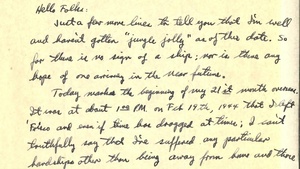 Hello Folks:
Just a few more lines to tell you that I'm well
and haven't gotten "jungle jolly" as of this date. So
far there is no sign of a ship; nor is there any
hope of one arriving in the near future.
Today marks the beginning of my 21st month overseas.
It was at about 1:00 PM. on Feb 19th, 1944 that I left
'Frisco and even if time has dragged at times; I can't
truthfully say that I've suffered any particular
hardships other than being away from home and those